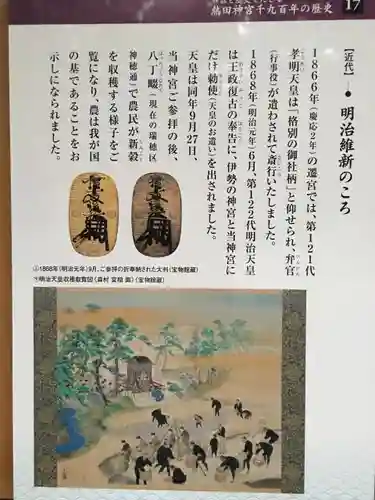 熱田神宮千九百年の歴史
17
【近代】 ● 明治維新のころ
1866年（慶応2年）の遷宮では、第121代
孝明天皇は「格別の御社柄」と仰せられ、弁官
（行事役）が遣わされて斎行いたしました。
1868年（明治元年）6月、第122代明治天皇
は王政復古の奉告に、伊勢の神宮と当神宮に
だけ勅使（天皇のお遣い）を出されました。
天皇は同年9月27日、
当神宮ご参拝の後、
八丁畷（現在の瑞穂区
神穂通）で農民が新穀
を収穫する様子をご
覧になり、農は我が国
の基であることをお
示しになられました。
①1868年（明治元年）9月、ご参拝の折奉納された大判（宝物館蔵）
明治天皇収穫叡覧図（森村宜稲 画）（宝物館蔵）